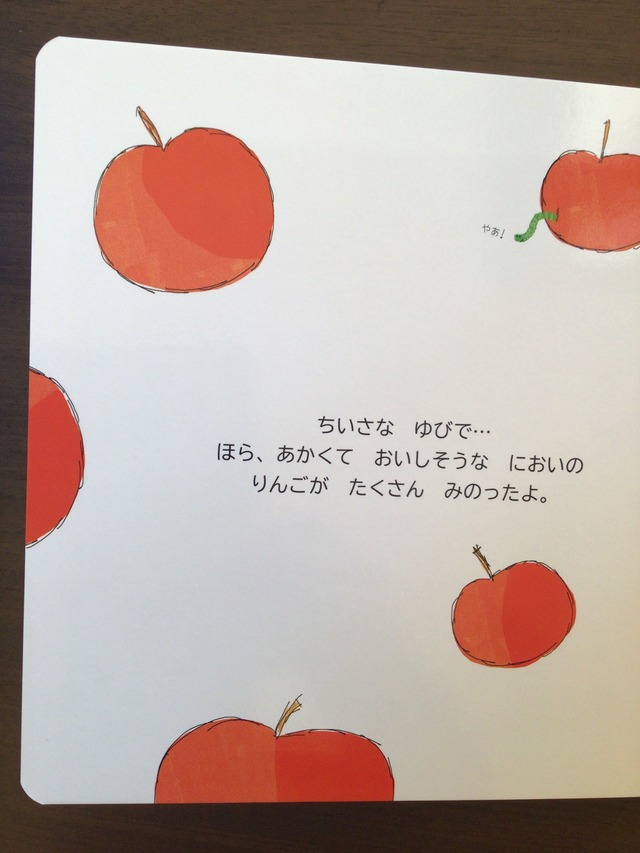 やあ!
ちいさな　ゆびで…
ほら、あかくて　おいしそうな　においの
りんごが　たくさん　みのったよ。